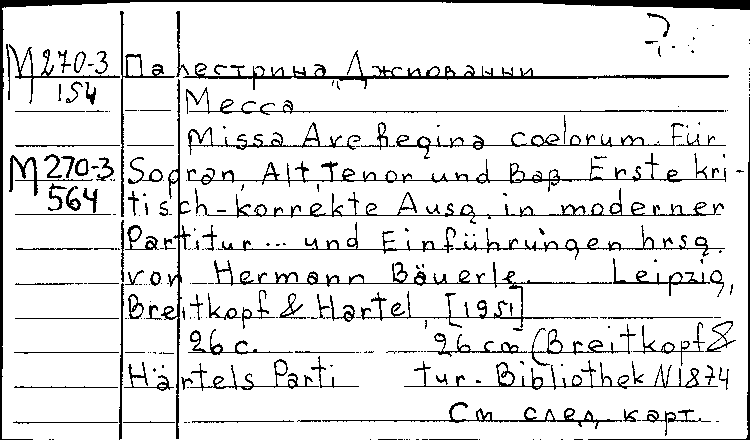 М 270-3 Палестрина, Джиованни
154 Месса
Missa Ave Regina coelorum. Für
М 270-3 Sopran, Alt, Tenor und Baß. Erste kri-
564 tisch-korrekte Ausg. in moderner
Partitur ... und Einführungen hrsg.
von Hermann Bäuerle. Leipzig,
Breitkopf & Hartel, [1951]
26 с. 26 см (Breitkopf &
Härtels Parti tur-Bibliothek N1874
См след. карт.